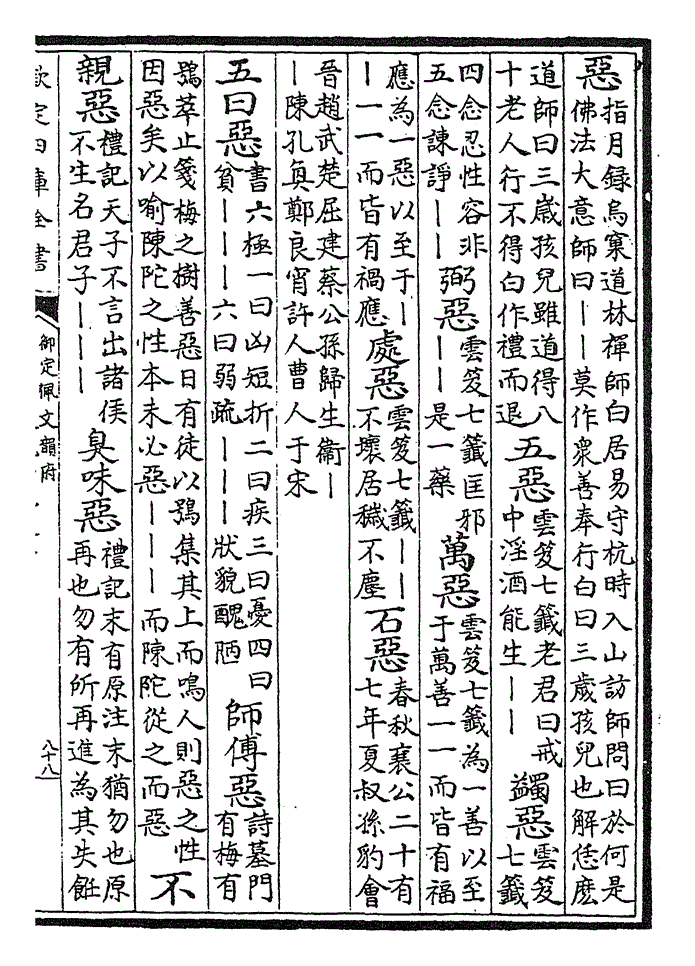 惡
指月錄烏窠道林禪師白居易守杭時入山訪師問曰於何是
佛法大意師曰丨丨莫作衆善奉行白曰三歲孩兒也解恁麽
道師曰三歲孩兒雖道得八
十老人行不得白作禮而退
五惡
雲笈七籤老君曰戒
中淫酒能生丨丨
蠲惡
雲笈
七籤
四念忍性容非
五念諫諍丨丨
弼惡
雲笈七籤匡邪
丨丨是一藥
萬惡
雲笈七籤為一善以至
于萬善一一而皆有福
應為一惡以至于丨
丨一一而皆有禍應
處惡
雲笈七籤丨丨
不壞居穢不塵
石惡
春秋襄公二十有
七年夏叔孫豹會
晉趙武楚屈建蔡公孫歸生衞丨
丨陳孔奐鄭良宵許人曹人于宋
五曰惡
書六極一曰凶短折二曰疾三曰憂四曰
貧丨丨丨六曰弱疏丨丨丨狀貌醜陋
師傅惡
詩墓門
有梅有
鴞萃止箋梅之樹善惡日有徒以鴞集其上而鳴人則惡之性
因惡矣以喻陳陀之性本未必惡丨丨丨而陳陀從之而惡
不親惡
禮記天子不言出諸侯
不生名君子丨丨丨
臭味惡
禮記末有原注末猶勿也原
再也勿有所再進為其失飪
欽定四庫全書
御定佩文韻府
八十八